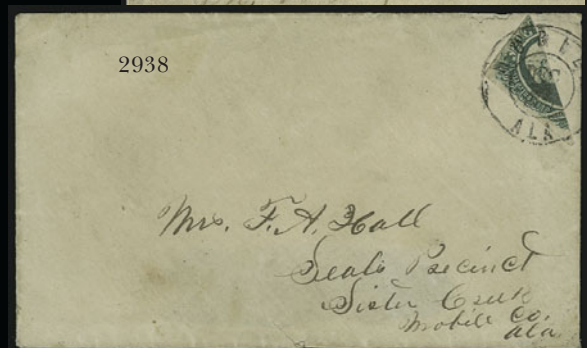 2938
ALA
Mrs. F. A. Hall
Seals Precinct
Sister Creek
Mobile Co.
Ala.